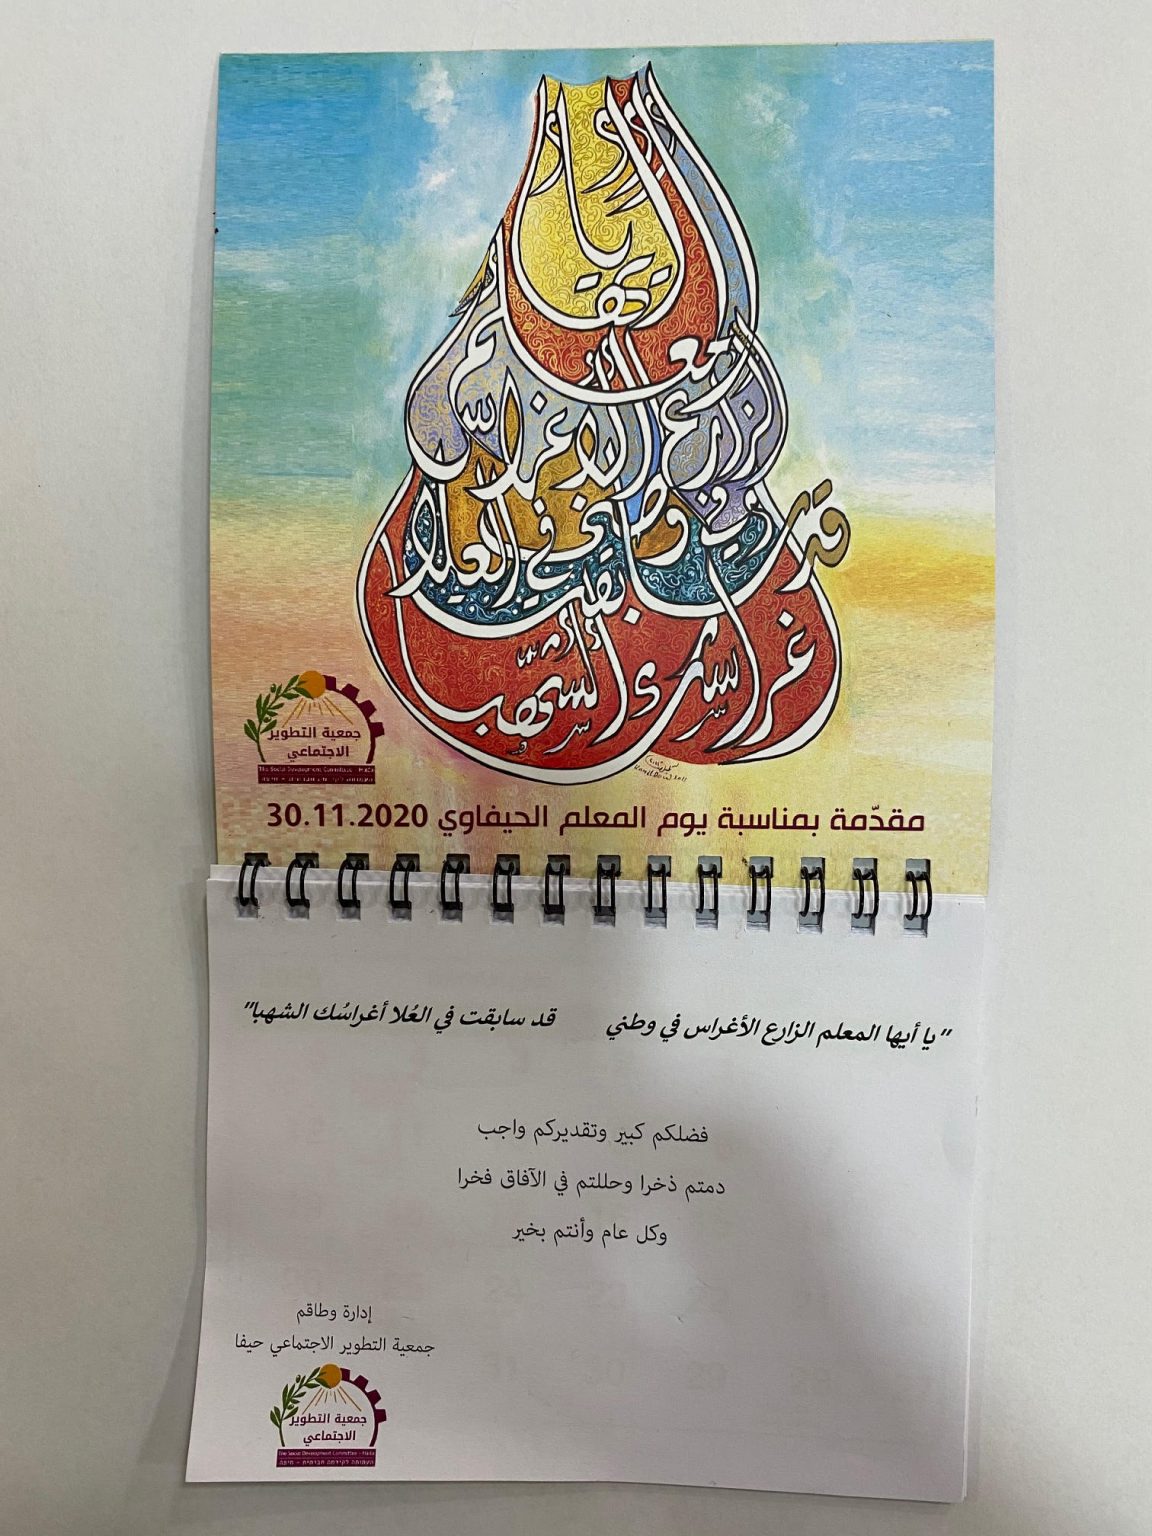 يا أيها المعلم الزارع الأغراس في وطني
قد سابقت في العلا أغراسك الشهبا
جمعية التطوير
الاجتماعي
The Social Development Committee - Haifa
مقدّمة بمناسبة يوم المعلم الحيفاوي 30.11.2020
"يا أيها المعلم الزارع الأغراس في وطني قد سابقت في العُلا أغراسُك الشهبا"
فضلكم كبير وتقديركم واجب
دمتم ذخرا وحللتم في الآفاق فخرا
وكل عام وأنتم بخير
إدارة وطاقم
جمعية التطوير الاجتماعي حيفا
جمعية التطوير
الاجتماعي
The Social Development Committee - Haifa
העמותה לקידמה חברתית - חיפה